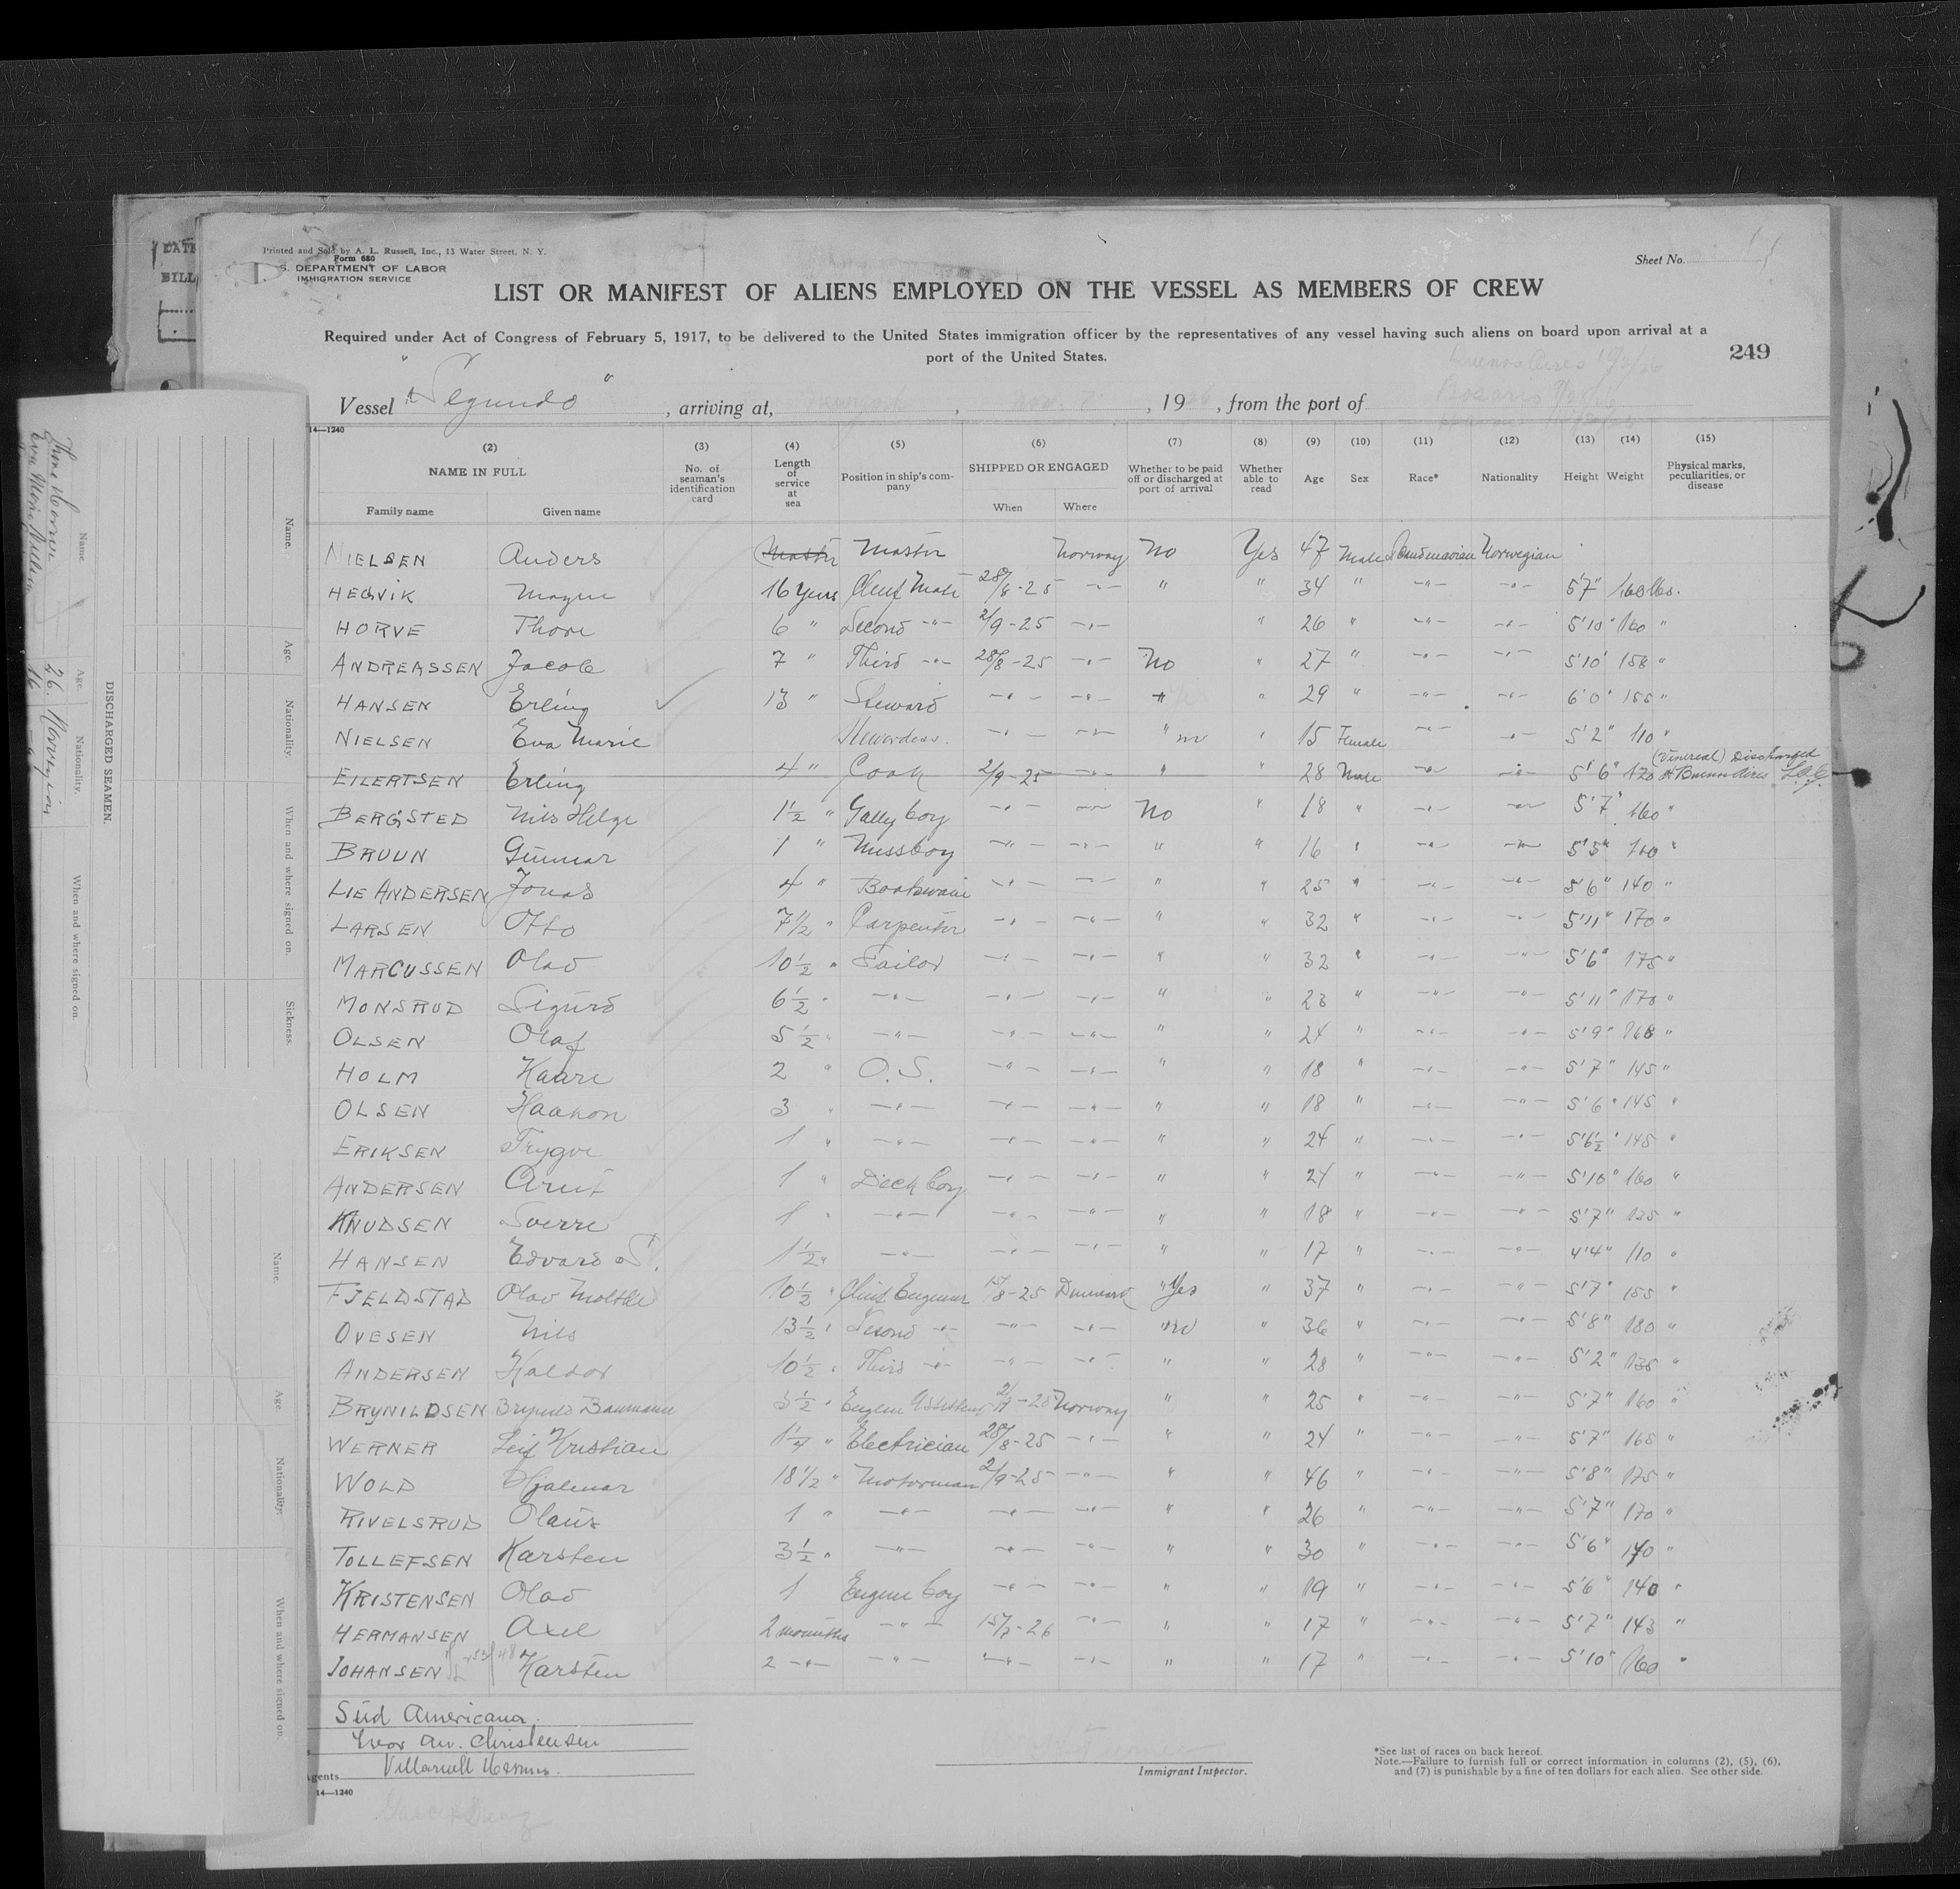 Printed and Sold by A. L. Russell, Inc., 13 Water Street, N. Y.
Form 680
U. S. DEPARTMENT OF LABOR
IMMIGRATION SERVICE
Sheet No.
LIST OR MANIFEST OF ALIENS EMPLOYED ON THE VESSEL AS MEMBERS OF CREW
Required under Act of Congress of February 5, 1917, to be delivered to the United States immigration officer by the representatives of any vessel having such aliens on board upon arrival at a
port of the United States.
249
Vessel "Segundo", arriving at, New York, Nov. 7, 1926, from the port of Buenos Aires
Rosario
14—1240
(2) (3) (4) (5) (6) (7) (8) (9) (10) (11) (12) (13) (14) (15)
NAME IN FULL No. of seaman's identification card Length of service at sea Position in ship's company SHIPPED OR ENGAGED Whether to be paid off or discharged at port of arrival Whether able to read Age Sex Race* Nationality Height Weight Physical marks, peculiarities, or disease
Family name Given name When Where
NIELSEN Anders Master Master Norway No Yes 47 Male Scandinavian Norwegian
HEGVIK Magne 16 years Chief Mate 28/8-25 -"- " " 34 " -"- -"- 5'7" 160 lbs.
HORVE Thore 6 " Second -"- 2/9-25 -"- " 26 " -"- -"- 5'10" 160 "
ANDREASSEN Jacob 7 " Third -"- 28/8-25 -"- No " 27 " -"- -"- 5'10" 158 "
HANSEN Erling 13 " Steward -"- -"- " " 29 " -"- -"- 6'0" 155 "
NIELSEN Eva Marie Stewardess. -"- -"- " no " 15 Female -"- -"- 5'2" 110 "
EILERTSEN Erling 4 " Cook 2/9-25 -"- " " 28 Male -"- -"- 5'6" 170 (Venereal) Discharged
BERGSTED Nils Helge 1½ " Gally boy -"- -"- No " 18 " -"- -"- 5'7" 160 "
BRUUN Gunnar 1 " Messboy -"- -"- " " 16 " -"- -"- 5'5" 140 "
LIE ANDERSEN Jonas 4 " Boatswain -"- -"- " " 25 " -"- -"- 5'6" 140 "
LARSEN Otto 7½ " Carpenter -"- -"- " " 32 " -"- -"- 5'11" 170 "
MARCUSSEN Olav 10½ " Sailor -"- -"- " " 32 " -"- -"- 5'6" 175 "
MONSRUD Sigurd 6½ " -"- -"- -"- " " 23 " -"- -"- 5'11" 170 "
OLSEN Olaf 5½ " -"- -"- -"- " " 24 " -"- -"- 5'9" 168 "
HOLM Kaare 2 " O.S. -"- -"- " " 18 " -"- -"- 5'7" 145 "
OLSEN Haakon 3 " -"- -"- -"- " " 18 " -"- -"- 5'6" 145 "
ERIKSEN Trygve 1 " -"- -"- -"- " " 24 " -"- -"- 5'6½" 145 "
ANDERSEN Arne 1 " Deck boy -"- -"- " " 24 " -"- -"- 5'10" 160 "
KNUDSEN Sverre 1 " -"- -"- -"- " " 18 " -"- -"- 5'7" 135 "
HANSEN Edvard S. 1½ " -"- -"- -"- " " 17 " -"- -"- 4'4" 110 "
FJELDSTAD Olav Moltke 10½ " Chief Engineer 15/8-25 Denmark " Yes " 37 " -"- -"- 5'7" 155 "
OVESEN Nils 13½ " Second -"- -"- -"- " no " 36 " -"- -"- 5'8" 180 "
ANDERSEN Haldor 10½ " Third -"- -"- -"- " " 28 " -"- -"- 5'2" 135 "
BRYNILDSEN Baumann 3½ " Engine Assistent -25 Norway " " 25 " -"- -"- 5'7" 160 "
WERNER Leif Kristian 1¼ " Electrician 28/8-25 -"- " " 24 " -"- -"- 5'7" 165 "
WOLD Hjalmar 18½ " Motorman 2/9-25 -"- " " 46 " -"- -"- 5'8" 175 "
RIVELSRUD Olaus 1 " -"- -"- -"- " " 26 " -"- -"- 5'7" 170 "
TOLLEFSEN Karsten 3½ " -"- -"- -"- " " 30 " -"- -"- 5'6" 140 "
KRISTENSEN Olav 1 Engine boy -"- -"- " " 19 " -"- -"- 5'6" 140 "
HERMANSEN Axel 2 mounths -"- 15/7-26 -"- " " 17 " -"- -"- 5'7" 143 "
JOHANSEN Karsten 2 -"- -"- -"- -"- " " 17 " -"- -"- 5'10" 160 "
Süd Americana
Ivar An. Christensen
Agents
14—1240
Immigrant Inspector.
*See list of races on back hereof.
Note.—Failure to furnish full or correct information in columns (2), (5), (6),
and (7) is punishable by a fine of ten dollars for each alien. See other side.
DISCHARGED SEAMEN.
Name Age. Nationality. When and where signed on.
Thore Horve 26. Norwegian
Eva Marie Nielsen 16 -"-
Name. Age. Nationality. When and where signed on. Sickness.
Name. Age. Nationality. When and where signed on.
DATE
BILL